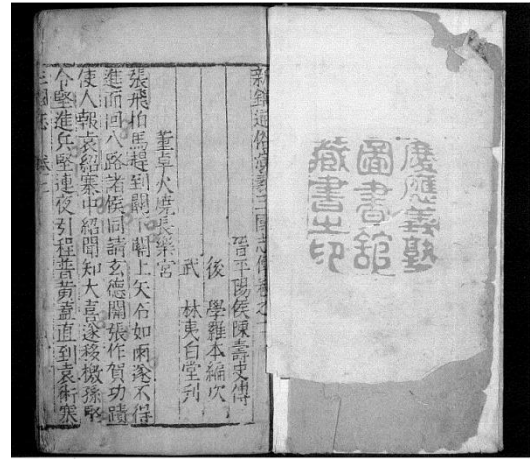 慶應義塾
圖書館
藏書之印
新鐫通俗演義三國志傳卷之二
晉平陽侯陳壽史傳
後 學羅本編次
武 林夷白堂刊
董卓火燒長樂宮
張飛拍馬趕到關下關上矢石如雨遂不得
進而回八路諸侯同請玄德關張作賀功蹟
使人報袁紹寨中紹聞知大喜遂移檄孫堅
令堅進兵堅連夜引程普黃蓋直到袁術寨
三國志 卷二